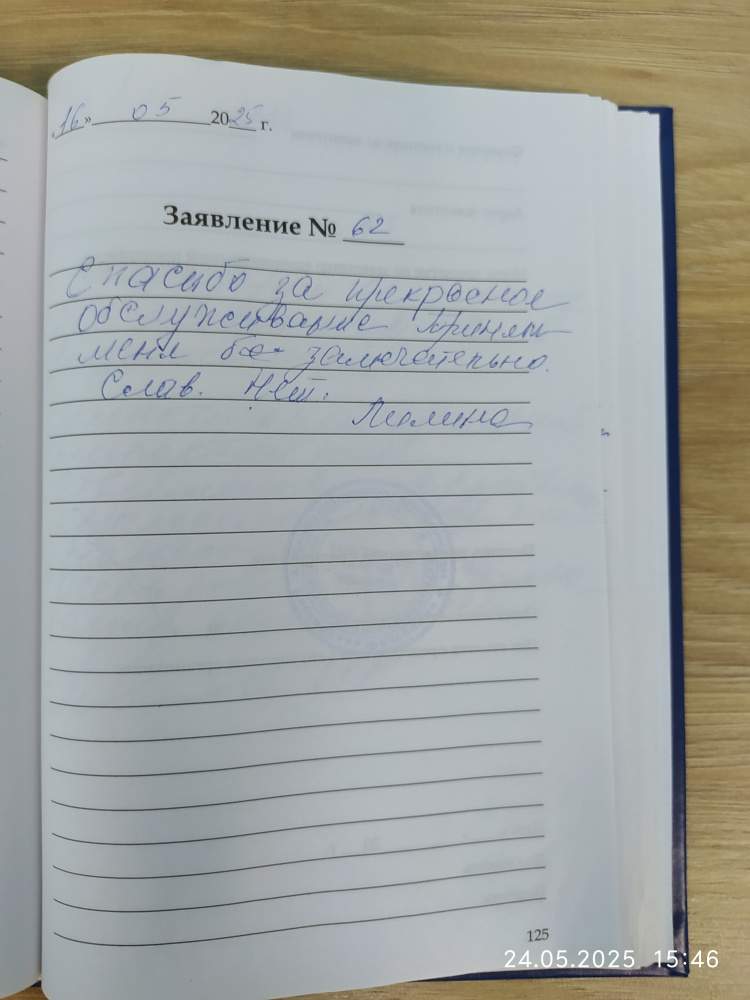 «16» 05 2025 г.
Заявление № 62
Спасибо за прекрасное
обслуживание Приняли
меня замечательно.
Слав. Нет.
125
24.05.2025 15:46